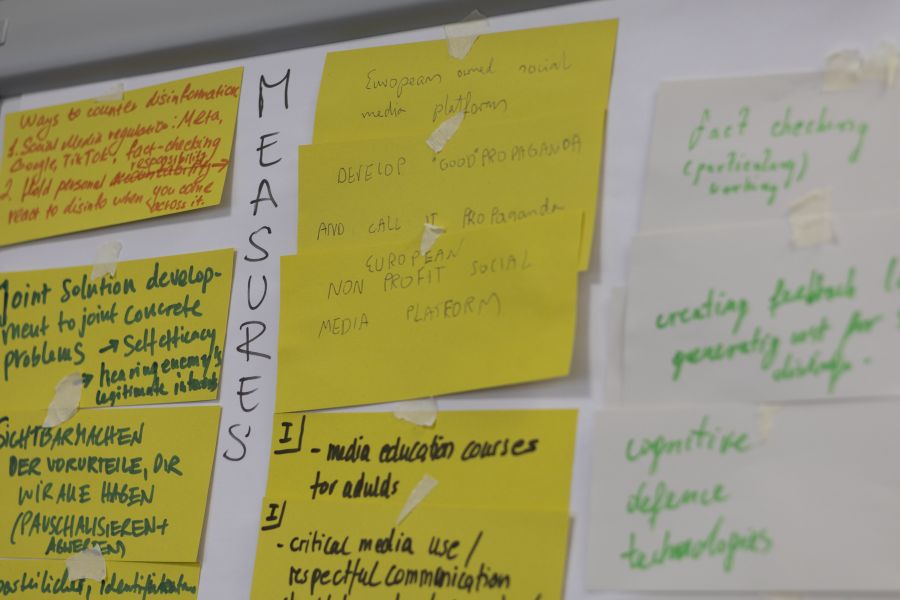 Ways to counter disinformation
1. Social Media regulation: Meta,
Google, TikTok, fact-checking
responsibility
2. Hold personal accountability →
react to disinfo when you come
across it.
Joint Solution develop-
ment to joint concrete
problems → Self efficacy
→ hearing enemy's
legitimate interests
SICHTBARMACHEN
DER VORURTEILE, DIE
WIR ALLE HABEN
(PAUSCHALISIEREN +
ABWERTEN)
MEASURES
European owned social
media platform
DEVELOP "GOOD" PROPAGANDA
AND CALL IT PROPaganda
EUROPEAN
NON PROFIT SOCIAL
MEDIA PLATFORM
I - media education courses
for adulds
I
- critical media use /
respectful communication
fact checking
(particulary)
working
creating feedback
generating for
cognitive
defence
technologies